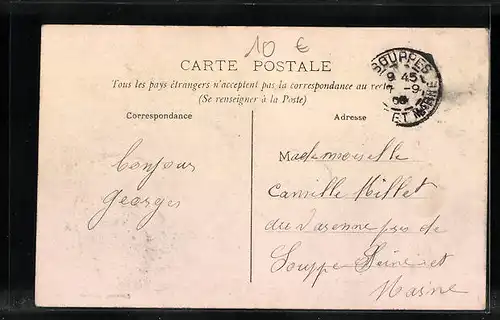 10 €
CARTE POSTALE
Tous les pays étrangers n'acceptent pas la correspondance au
(Se renseigner à la Poste)
SOUPPES
9 45
7 -9
ET MARNE
Correspondance
Adresse
Bonjour
Georges
Mademoiselle
Camille Millet
du Varenne près de
Souppe Seine et
Marne